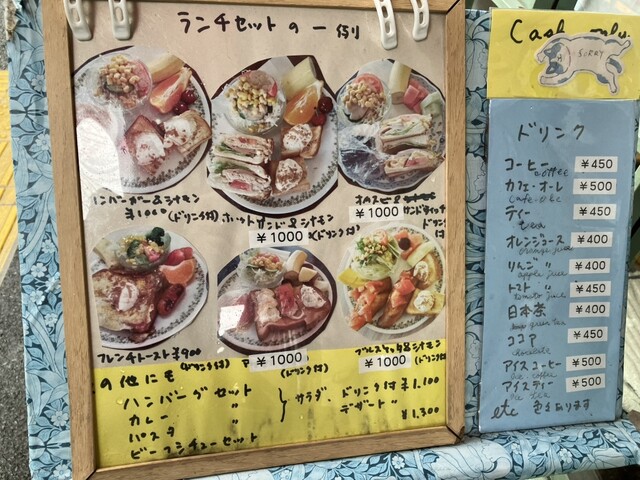 ランチセットの一例
ハンバーガー&シナモン
¥1000 (ドリンク付)
ホットサンド&シナモン
¥1000 (ドリンク付)
¥1000 サンドウィッチ
ドリンク付
フレンチトースト ¥900
(ドリンク付)
¥1000
(ドリンク付)
ブルスケッタ&シナモン
¥1000 (ドリンク付)
の他にも
ハンバーグセット
カレー 〃
パスタ
ビーフシチューセット
サラダ、ドリンク付 ¥1,100
デザート 〃 ¥1,300
Cash only
SORRY
ドリンク
コーヒー ¥450
coffee
カフェ・オレ ¥500
cafe-o-le
ティー ¥450
tea
オレンジジュース ¥400
orange juice
りんご 〃 ¥400
apple juice
トマト 〃 ¥450
tomato juice
日本茶 ¥400
green tea
ココア ¥450
アイスコーヒー ¥500
ice coffee
アイスティー ¥500
ice tea
etc 色々あります